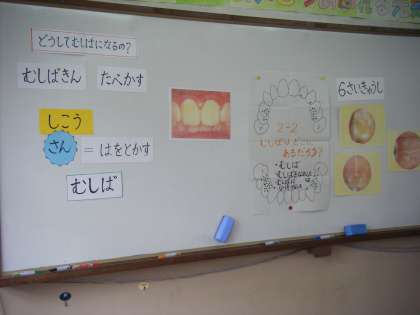 どうしてむしばになるの?
むしばきん
たべかす
しこう
さん
=はをとかす
むしば
2-2
あるだろう?
・むし歯
6さいきゅうし